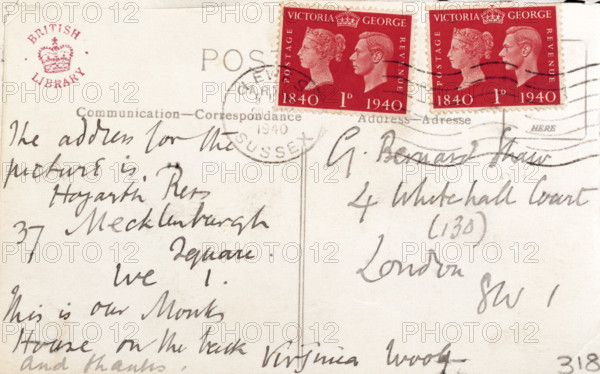 BRITISH
LIBRARY
POST
VICTORIA GEORGE
POSTAGE
REVENUE
1840 1D 1940
VICTORIA GEORGE
POSTAGE
REVENUE
1840 1D 1940
LEWES
1940
SUSSEX
Communication—Correspondance
Address—Adresse
HERE
The address for the
picture is.
Hogarth Press
37 Mecklenburgh
Square.
WC 1.
This is our Monks
House on the back
and thanks.
Virginia Woolf
G. Bernard Shaw
4 Whitehall Court
(130)
London
SW 1
318
PHOTO12